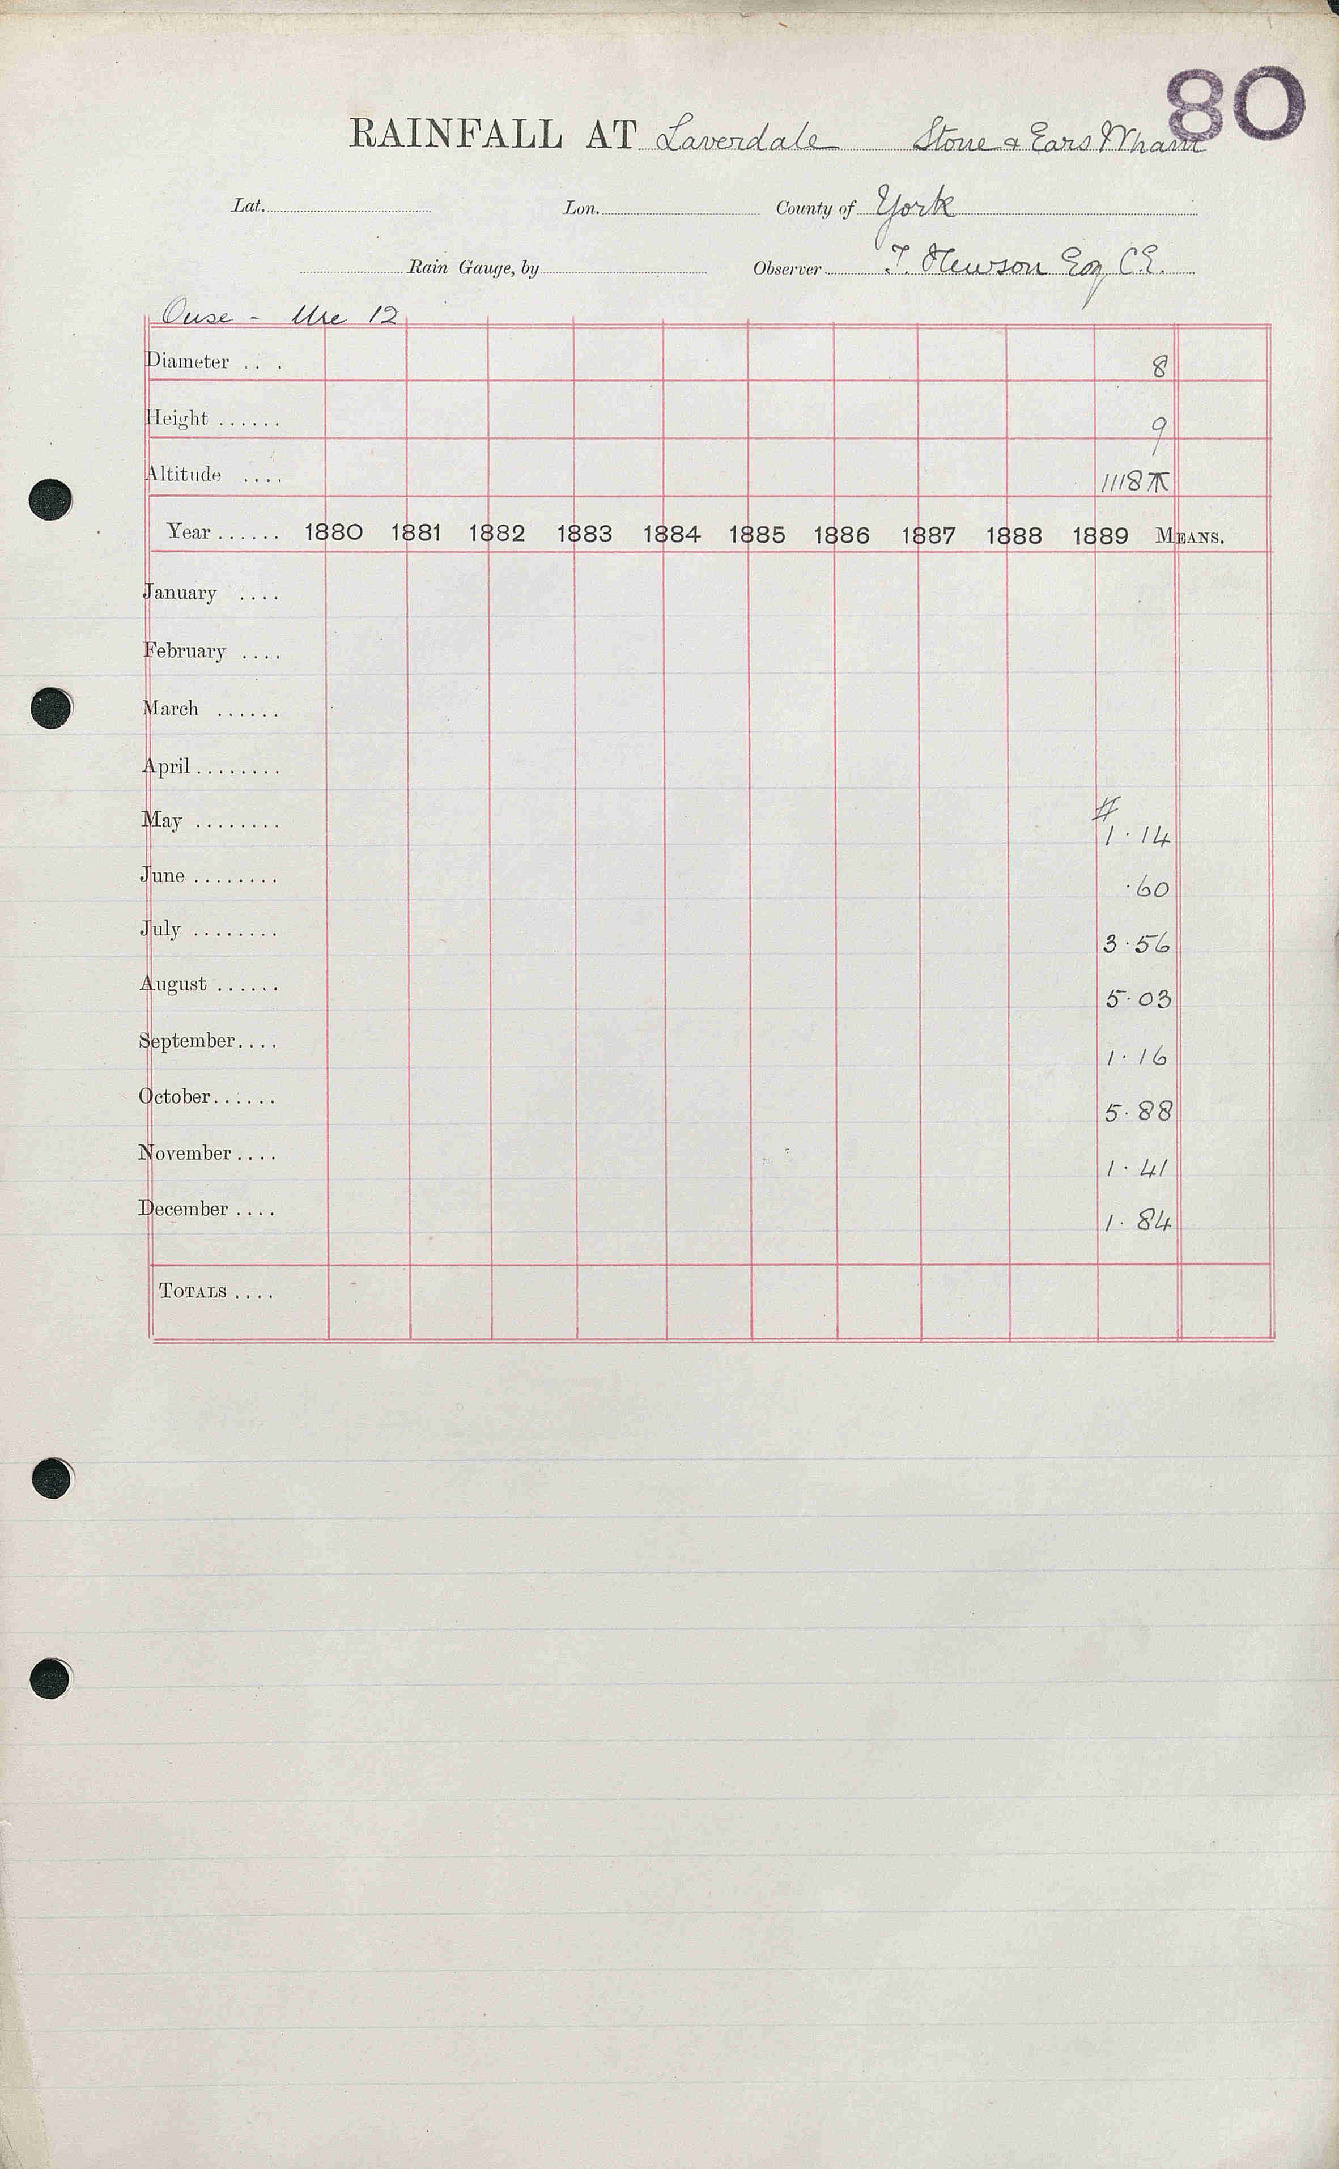 80
RAINFALL AT Laverdale Stone & Ears Wham
Lat. Lon. County of York
Rain Gauge, by Observer T. Hewson Esq C.E.
Ouse - Ure 12
Diameter .... 8
Height ...... 9
Altitude .... 1118
Year ...... 1880 1881 1882 1883 1884 1885 1886 1887 1888 1889 MEANS.
January ....
February ....
March ......
April ........
#
May ........ 1.14
June ........ .60
July ........ 3.56
August ...... 5.03
September.... 1.16
October...... 5.88
November .... 1.41
December .... 1.84
TOTALS ....